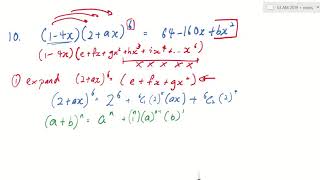 10. (1-4x)(2+ax)⁶ = 64-160x+bx²
(1-4x)(e+fx+gx²+hx³+ix⁴+...x⁶)
x x x x x
① expand (2+ax)⁶ = (e+fx+gx²)
(2+ax)⁶ = 2⁶ + ⁶C₁(2)⁵(ax) + ⁶C₂(2)⁴
(a+b)ⁿ = aⁿ + (ⁿ₁)(a)ⁿ⁻¹(b)¹